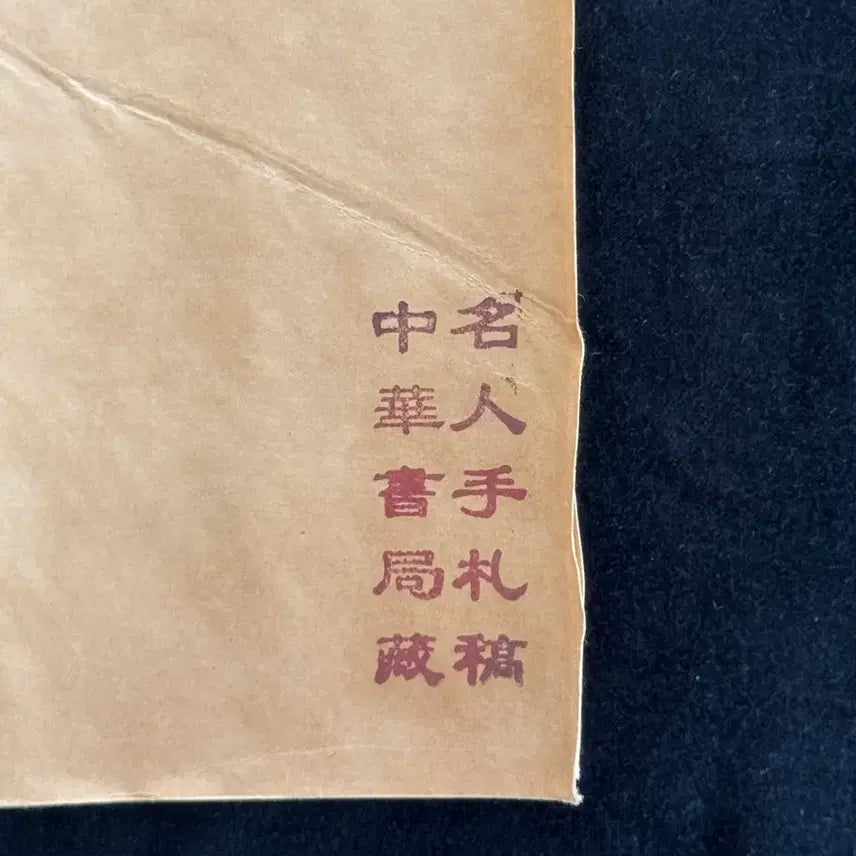 名人手札稿
中華書局藏